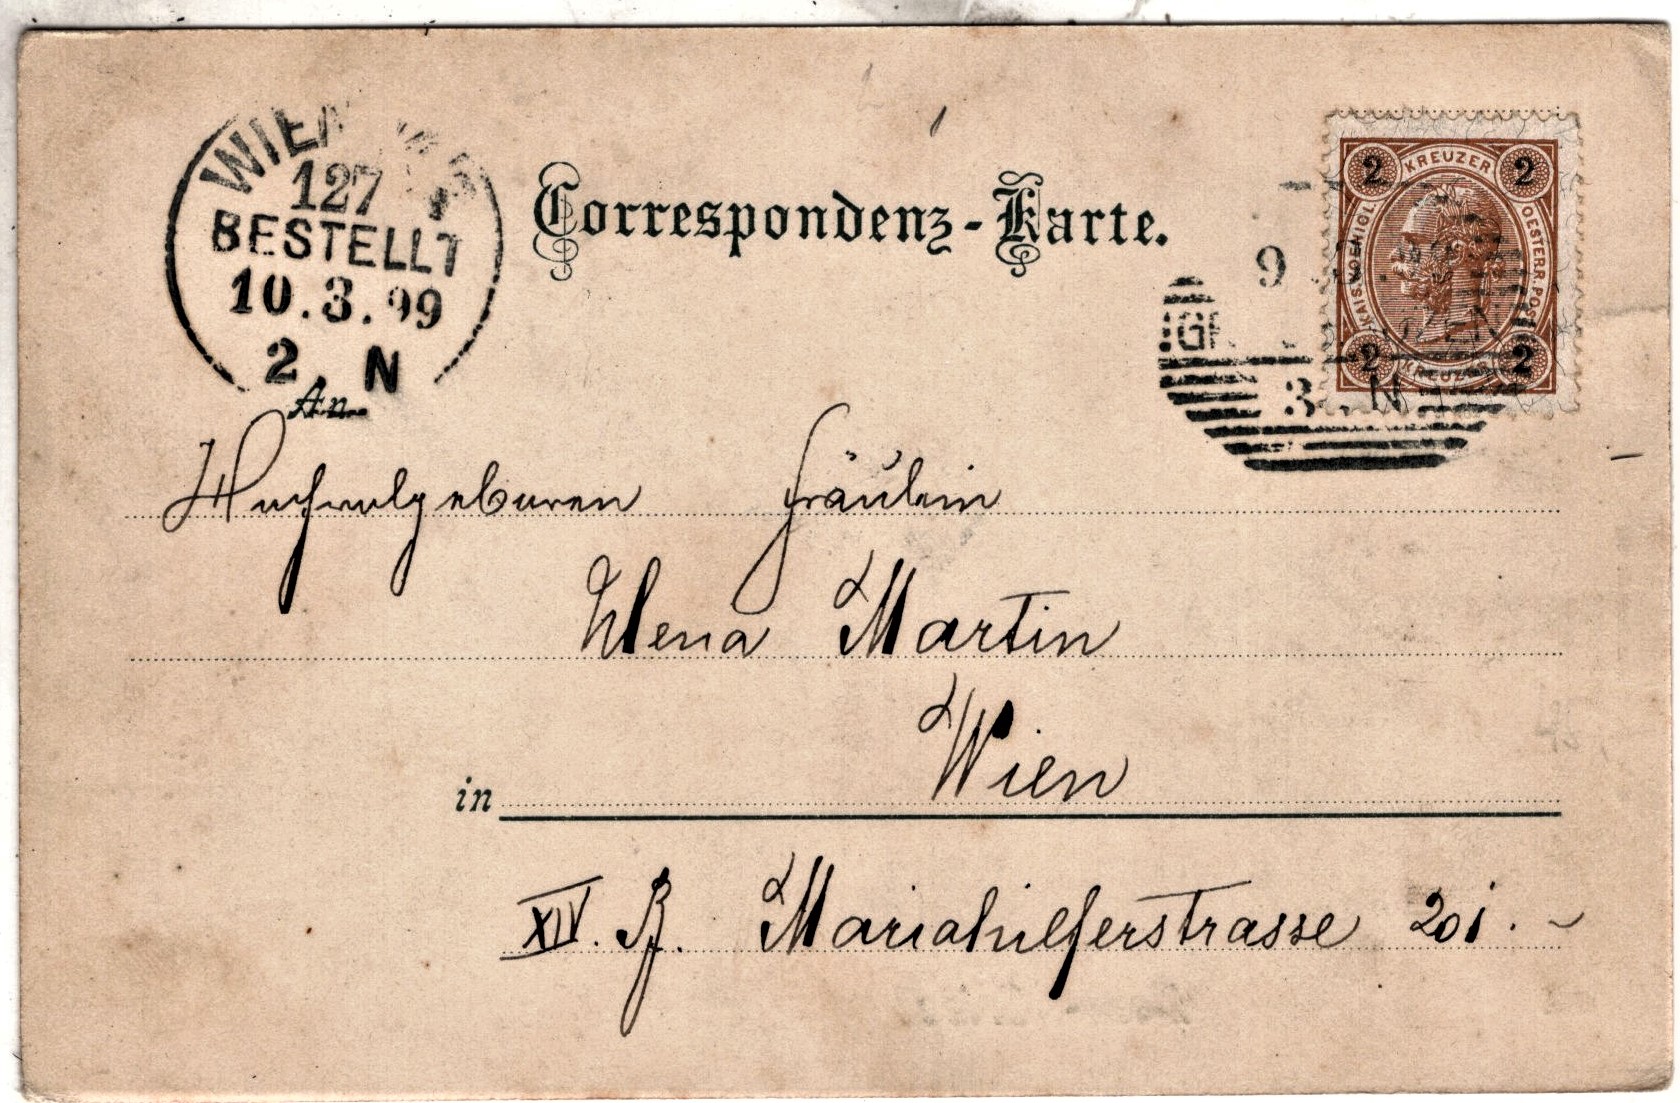 WIEN
127
BESTELLT
10.3.99
2. N
Correspondenz-Karte.
2 KREUZER 2
KAIS. KOENIGL. OESTERR. POST
2 KREUZER 2
9
3 N
An
Hochwolgeboren Fräulein
Martin
in Wien
XIV. Bz. Mariahilferstrasse 201.